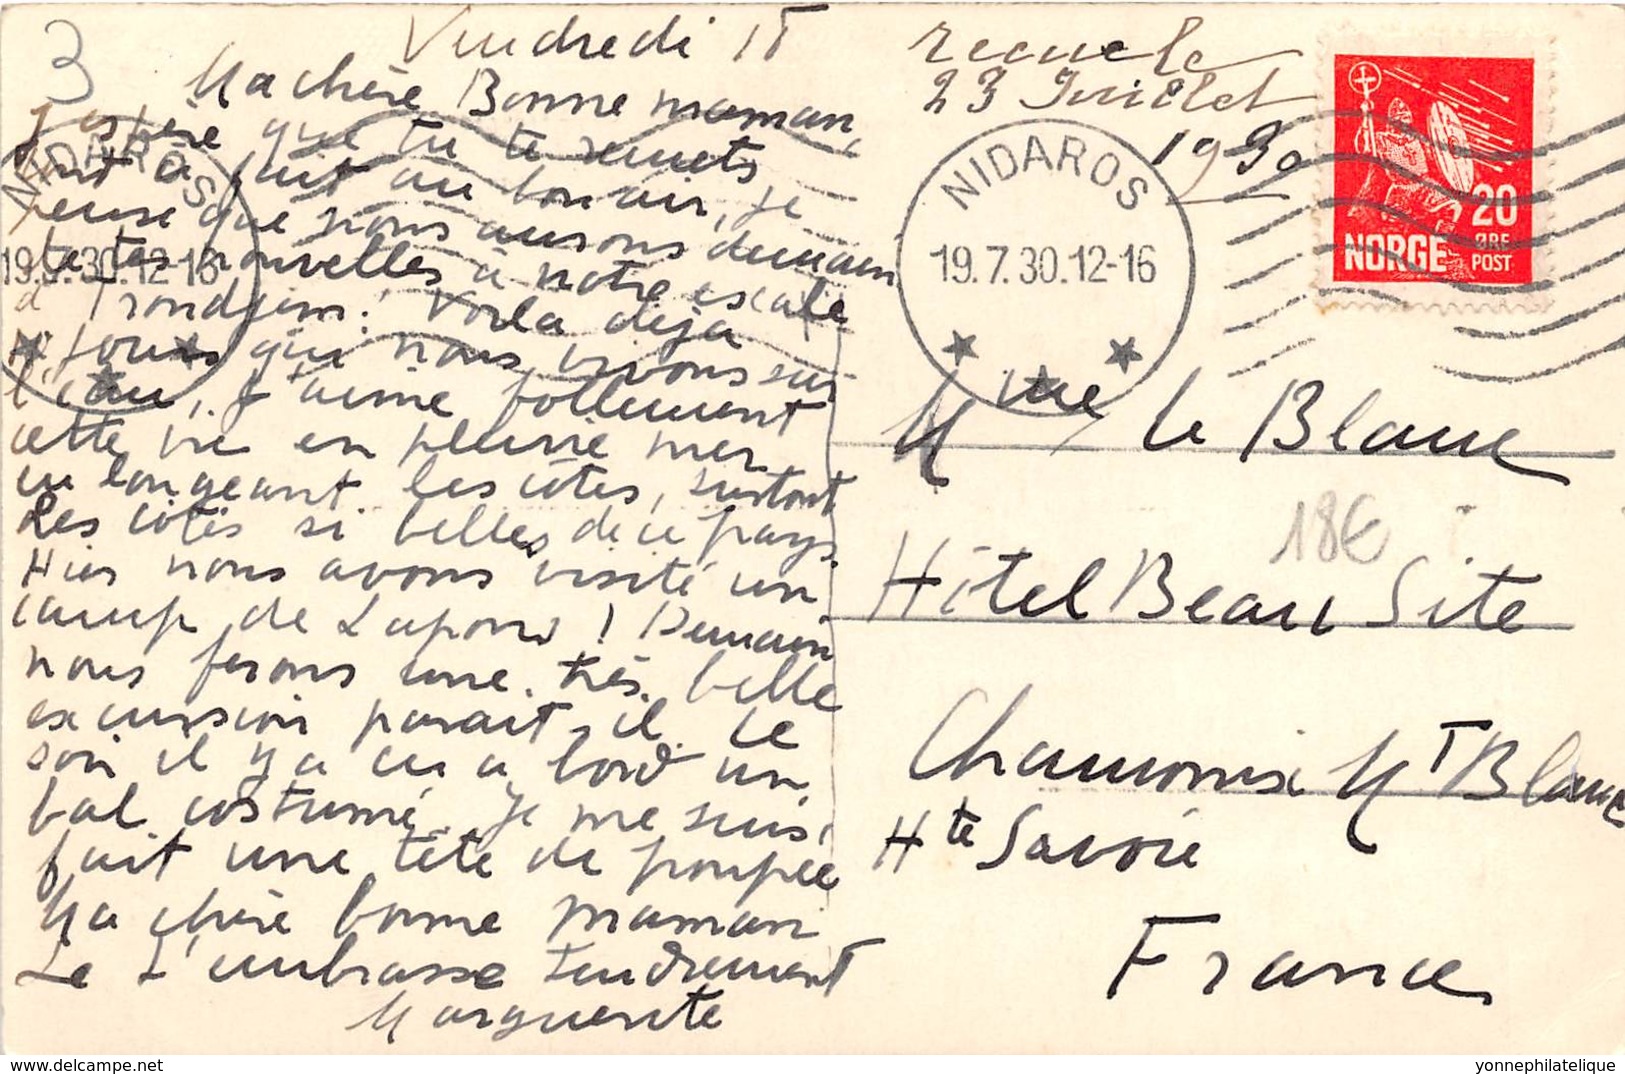 3
Vendredi 18
Ma chère Bonne maman,
J'espère que tu te remets
tout à fait au bon air, je
pense que nous aurons demain
de tes nouvelles à notre escale
à Trondjem! Voila déjà
jours qui nous vivons sur
l'eau, j'aime follement
cette vie en pleine mer
en longeant les côtes, surtout
les côtes si belles de ce pays.
Hier nous avons visité un
camp de Lapons! Demain
nous ferons une très belle
excursion parait-il. Ce
soir il y a eu à bord un
bal costumé. Je me suis
fait une tête de poupée
Ma chère bonne maman
Je t'embrasse tendrement
Marguerite
recue le
23 Juillet
1930
NIDAROS
19.7.30.12-16
NIDAROS
19.7.30.12-16
20
ØRE
NORGE POST
Mme Le Blanc
18€
Hôtel Beau Site
Chamonix Mt Blanc
Hte Savoie
France
yonnephilatelique